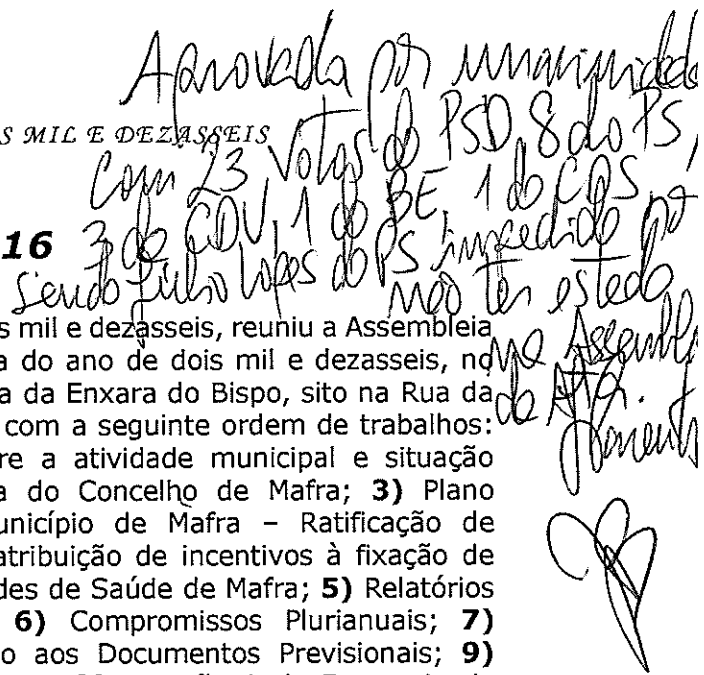 Aprovada por unanimidade
S MIL E DEZASSEIS
com 23 votos do PSD, 8 do PS,
3 da CDU, 1 do BE, 1 do CDS
16
sendo Júlio Lopes do PS impedido por
não ter estado
na Assembl
s mil e dezasseis, reuniu a Assembleia
a do ano de dois mil e dezasseis, no
a da Enxara do Bispo, sito na Rua da
com a seguinte ordem de trabalhos:
re a atividade municipal e situação
a do Concelho de Mafra; 3) Plano
unicípio de Mafra – Ratificação de
atribuição de incentivos à fixação de
des de Saúde de Mafra; 5) Relatórios
6) Compromissos Plurianuais; 7)
o aos Documentos Previsionais; 9)